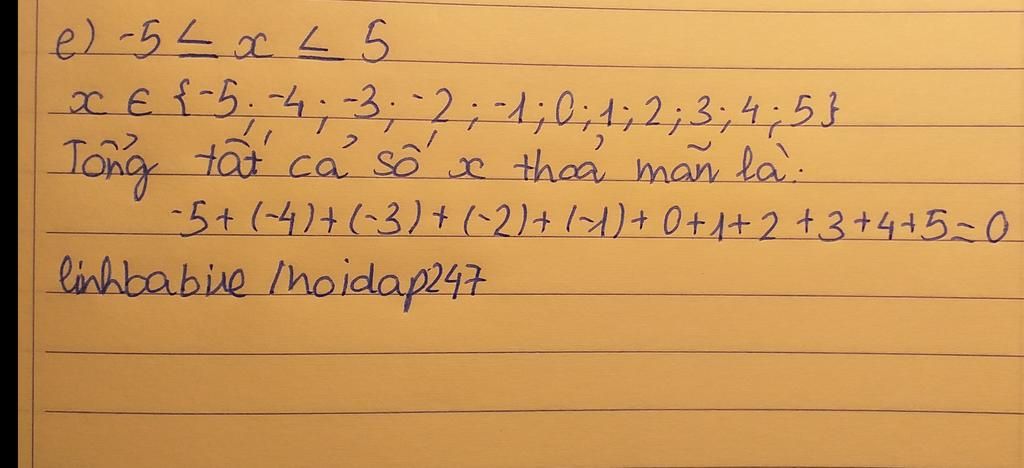 e) -5 ≤ x ≤ 5
x ∈ {-5; -4; -3; -2; -1; 0; 1; 2; 3; 4; 5}
Tổng tất cả số x thoả mãn là:
-5 + (-4) + (-3) + (-2) + (-1) + 0 + 1 + 2 + 3 + 4 + 5 = 0
linhbabie /hoidap247